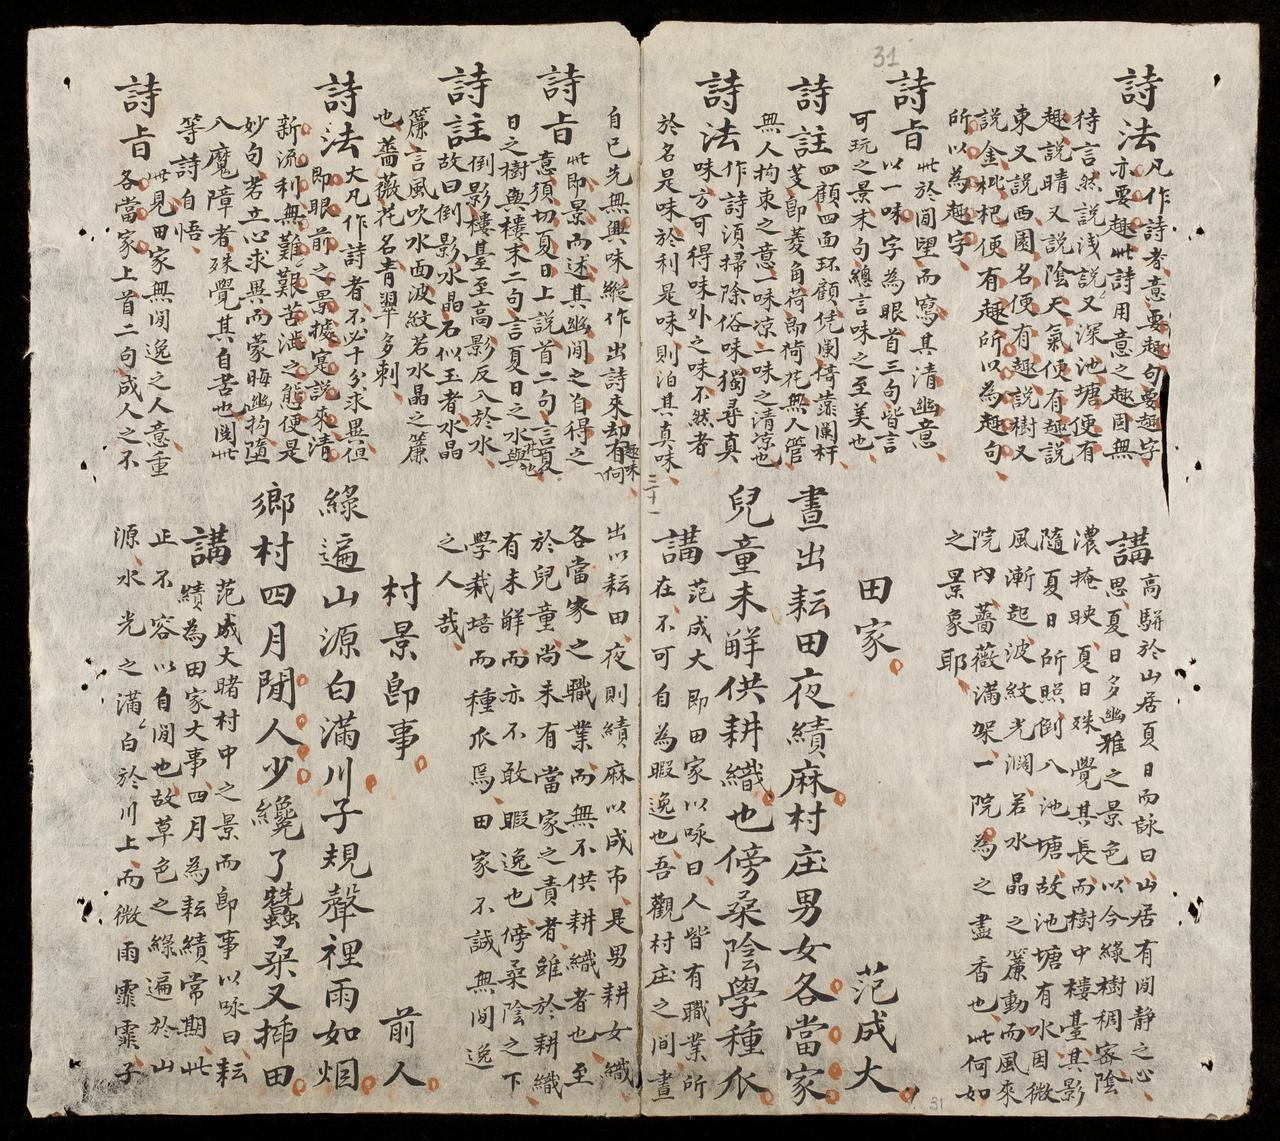 31
詩法凡作詩者意要趣句要趣字
亦要趣此詩用意之趣固無
待言然說浅說又深池塘便有
趣說晴又說陰天氣便有趣說
東又說西園名便有趣說樹又
說金枇杷便有趣所以為趣句
所以為趣字
詩㫖此於間望而寫其清幽意
以一味字為眼首三句皆言
可玩之景末句總言味之至美也
詩註四顧四面环顧凭阑倚靠阑杆
芰即菱角荷即荷花無人管
無人拘束之意一味凉一味之清凉也
詩法作詩須掃除俗味獨尋真
味方可得味外之味不然者
於名是味於利是味則泊其真味
講高駢於山居夏日而詠曰山居有間静之心
思夏日多幽雅之景色以今綠樹稠宻陰
濃掩映夏日殊覺其長而樹中樓臺其影
隨夏日所照倒入池塘故池塘有水因微
風漸起波紋光濶若水晶之簾動而風來
院內薔薇滿架一院為之盡香也此何如
之景象耶
田家
范成大
晝出耘田夜績麻村庄男女各當家
兒童未觧供耕織也傍桑陰學種瓜
講范成大即田家以咏曰人皆有職業所
在不可自為暇逸也吾觀村庄之間晝
三十一
31
自己先無興味縱作出詩來却有何
趣味
詩㫖此即景而述其幽間之自得之
意須切夏日上說首二句言夏
日之樹與樓末二句言夏日之水與
花也
詩註倒影樓臺至高影反入於水
故曰倒影水晶石似玉者水晶
簾言風吹水面波紋若水晶之簾
也薔薇花名青翠多刺
詩法大凡作詩者不必十分求異但
即眼前之景㨿寔說來清
新流利無難艱苦澁之態便是
妙句若立心求異而蒙晦幽拘墮
八魔障者殊覺其自苦也閱此
等詩自悟
詩㫖此見田家無間逸之人意重
各當家上首二句成人之不
出以耘田夜則績麻以成布是男耕女織
各當家之職業而無不供耕織者也至
於兒童尚未有當家之責者雖於耕織
有未觧而亦不敢暇逸也傍桑陰之下
學栽培而種瓜焉田家不誠無間逸
之人哉
村景即事
前人
綠遍山源白滿川子規聲裡雨如烟
鄉村四月閒人少纔了蠶桑又揷田
講范成大睹村中之景而即事以咏曰耘
績為田家大事四月為耘績常期此
正不容以自間也故草色之綠遍於山
源水光之滿白於川上而微雨霏霏子